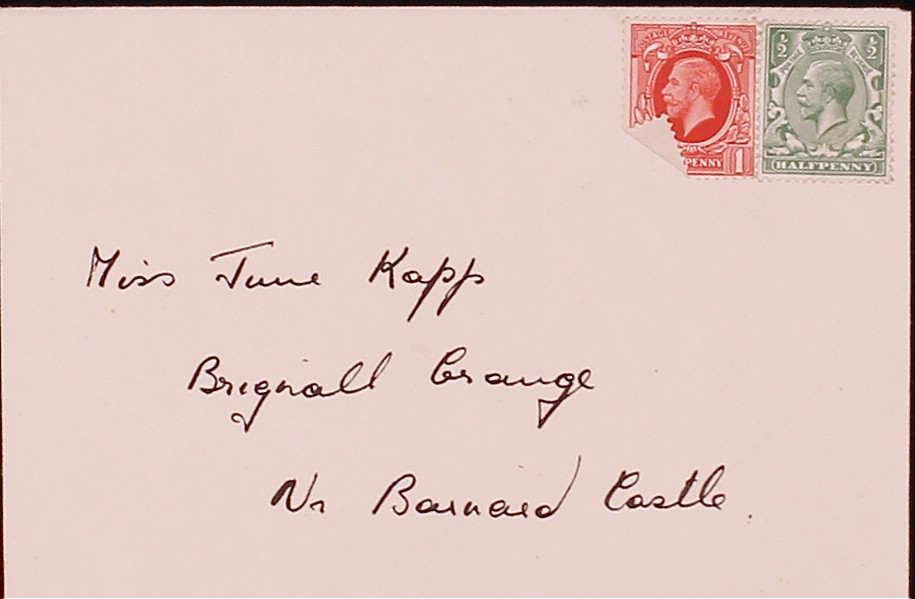 POSTAGE REVENUE
PENNY 1
½ ½
HALFPENNY
Miss June Kapp
Brignall Grange
Nr Barnard Castle.